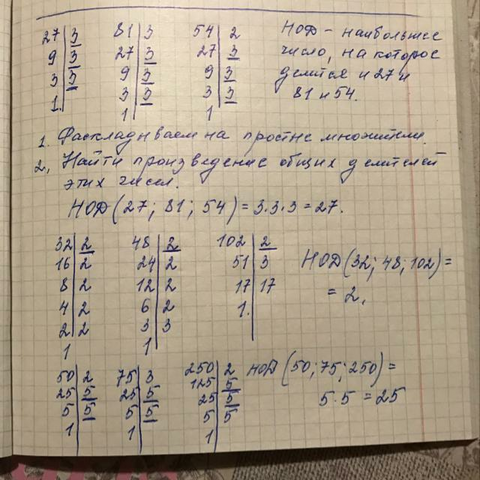 27 | 3   81 | 3   54 | 2   НОД – наибольшее
9 | 3   27 | 3   27 | 3   число, на которое
3 | 3   9 | 3   9 | 3   делится и 27 и
1   3 | 3   3 | 3   81 и 54.
1   1
1. Раскладываем на простые множители.
2. Найти произведение общих делителей
этих чисел.
НОД (27; 81; 54) = 3·3·3 = 27.
32 | 2   48 | 2   102 | 2   НОД (32; 48; 102) =
16 | 2   24 | 2   51 | 3   = 2.
8 | 2   12 | 2   17 | 17
4 | 2   6 | 2   1.
2 | 2   3 | 3
1   1
50 | 2   75 | 3   250 | 2   НОД (50; 75; 250) =
25 | 5   25 | 5   125 | 5   5·5 = 25
5 | 5   5 | 5   25 | 5
1   1   5 | 5
1